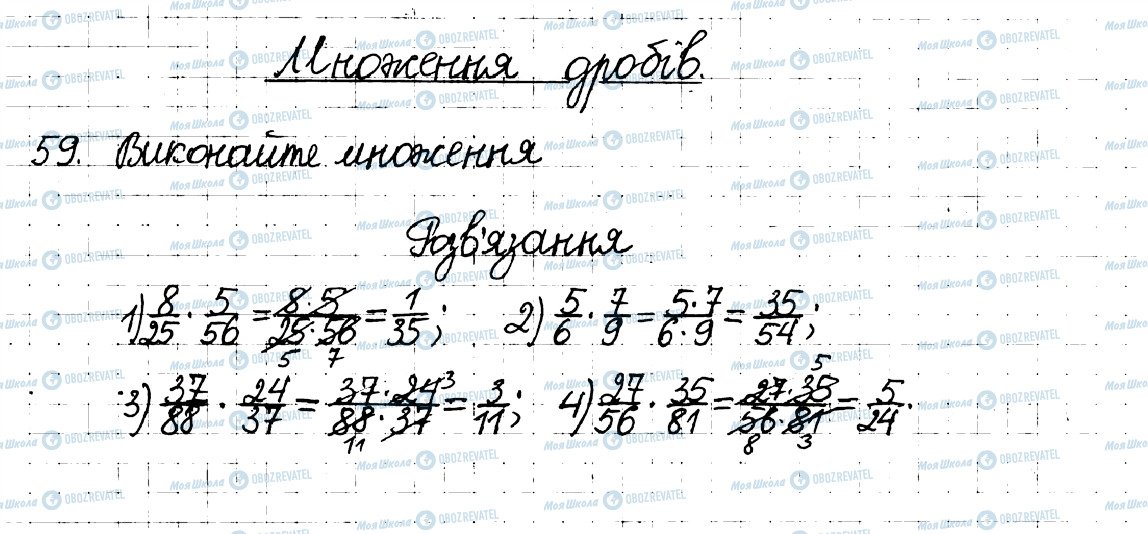 Множення дробів.
59. Виконайте множення
Розв'язання
1) 8/25 · 5/56 = 8·5/25·56 = 1/35; 2) 5/6 · 7/9 = 5·7/6·9 = 35/54;
5 7
3) 37/88 · 24/37 = 37·24/88·37 = 3/11; 4) 27/56 · 35/81 = 27·35/56·81 = 5/24.
3 11 5 8 3
Моя Школа OBOZREVATEL